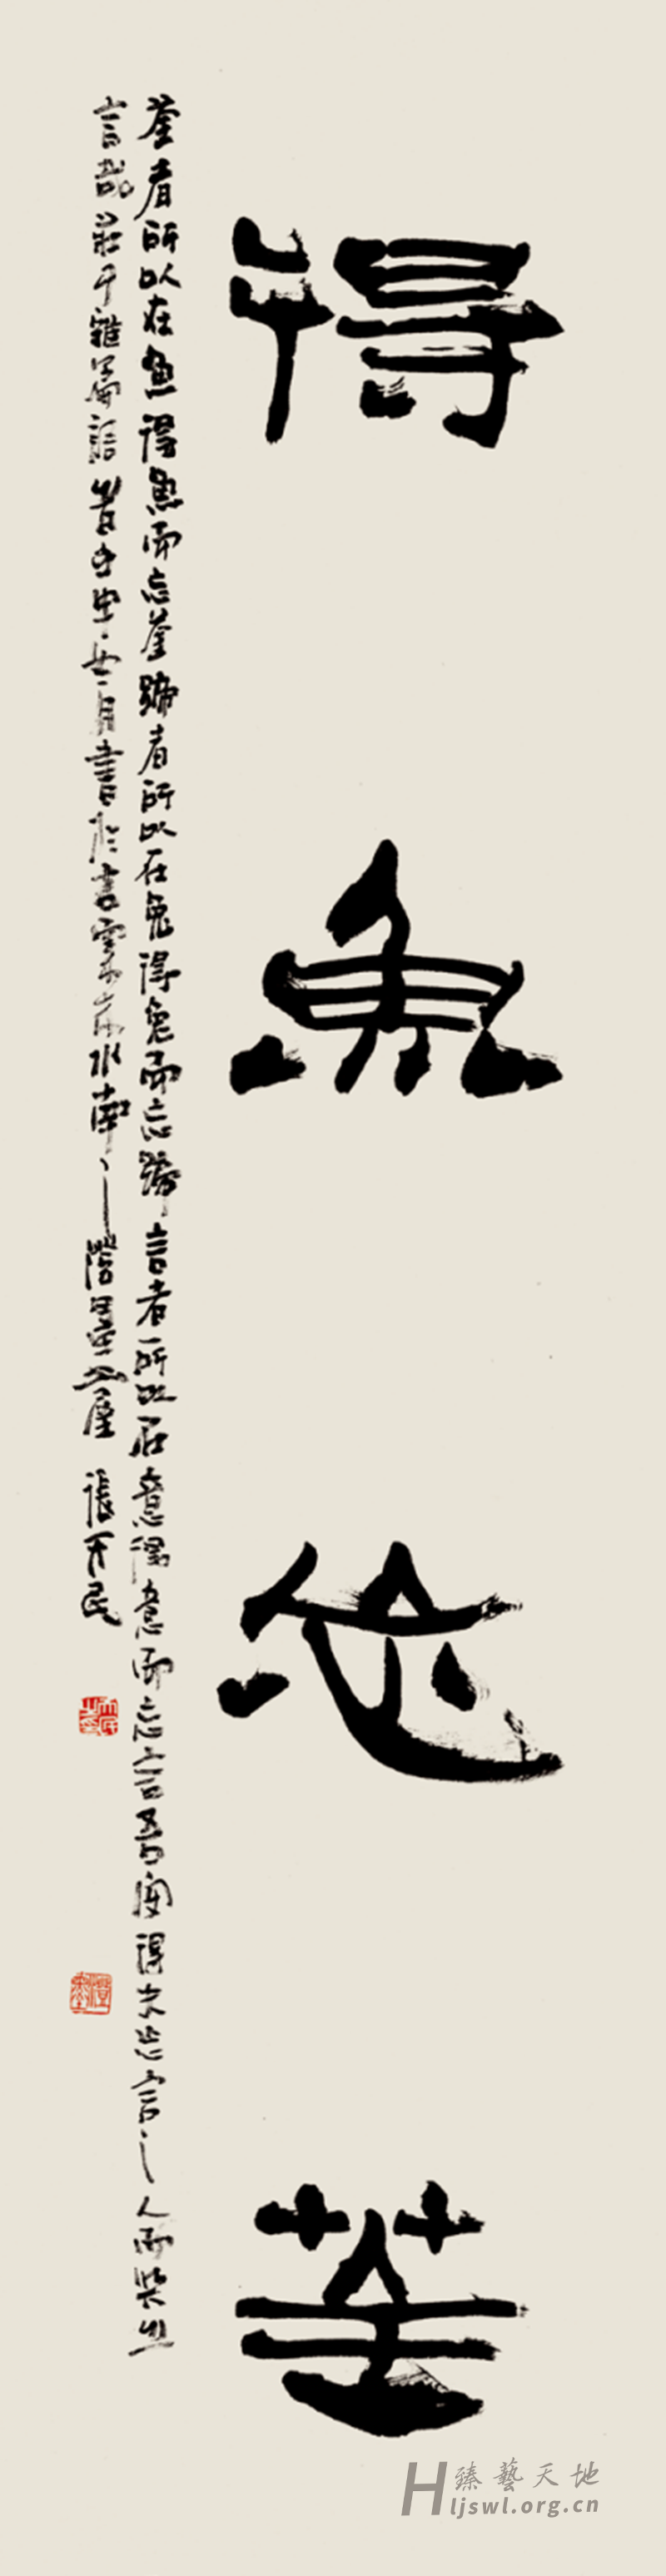 得魚忘荃
荃者所以在魚得魚而忘荃蹄者所以在兔得兔而忘蹄言者所以在意得意而忘言吾安得夫忘言之人而與之
言哉莊子雜篇語 五月書於 水南之 墨 屋 張天民
臻藝天地
Hljswl.org.cn